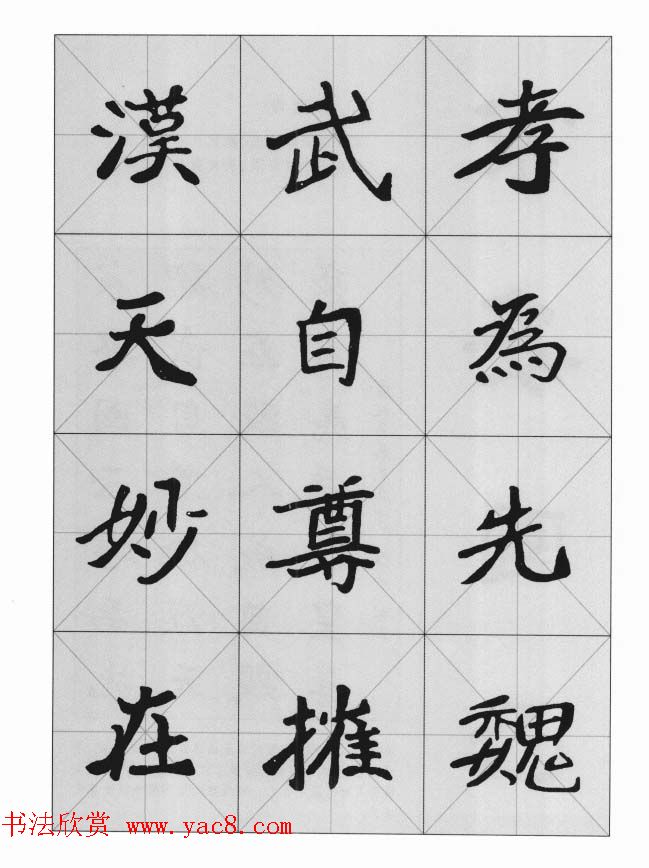 孝為先魏
武自尊
漢天妙在
书法欣赏 www.yac8.com